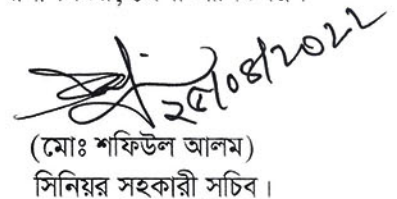 ২৫/০৪/২০২২
(মোঃ শফিউল আলম)
সিনিয়র সহকারী সচিব।